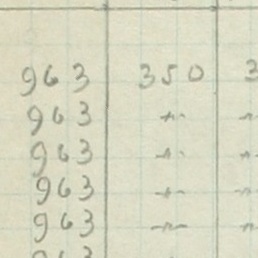 963 350 3
963 -"-
963 -"-
963 -"-
963 -"-
963